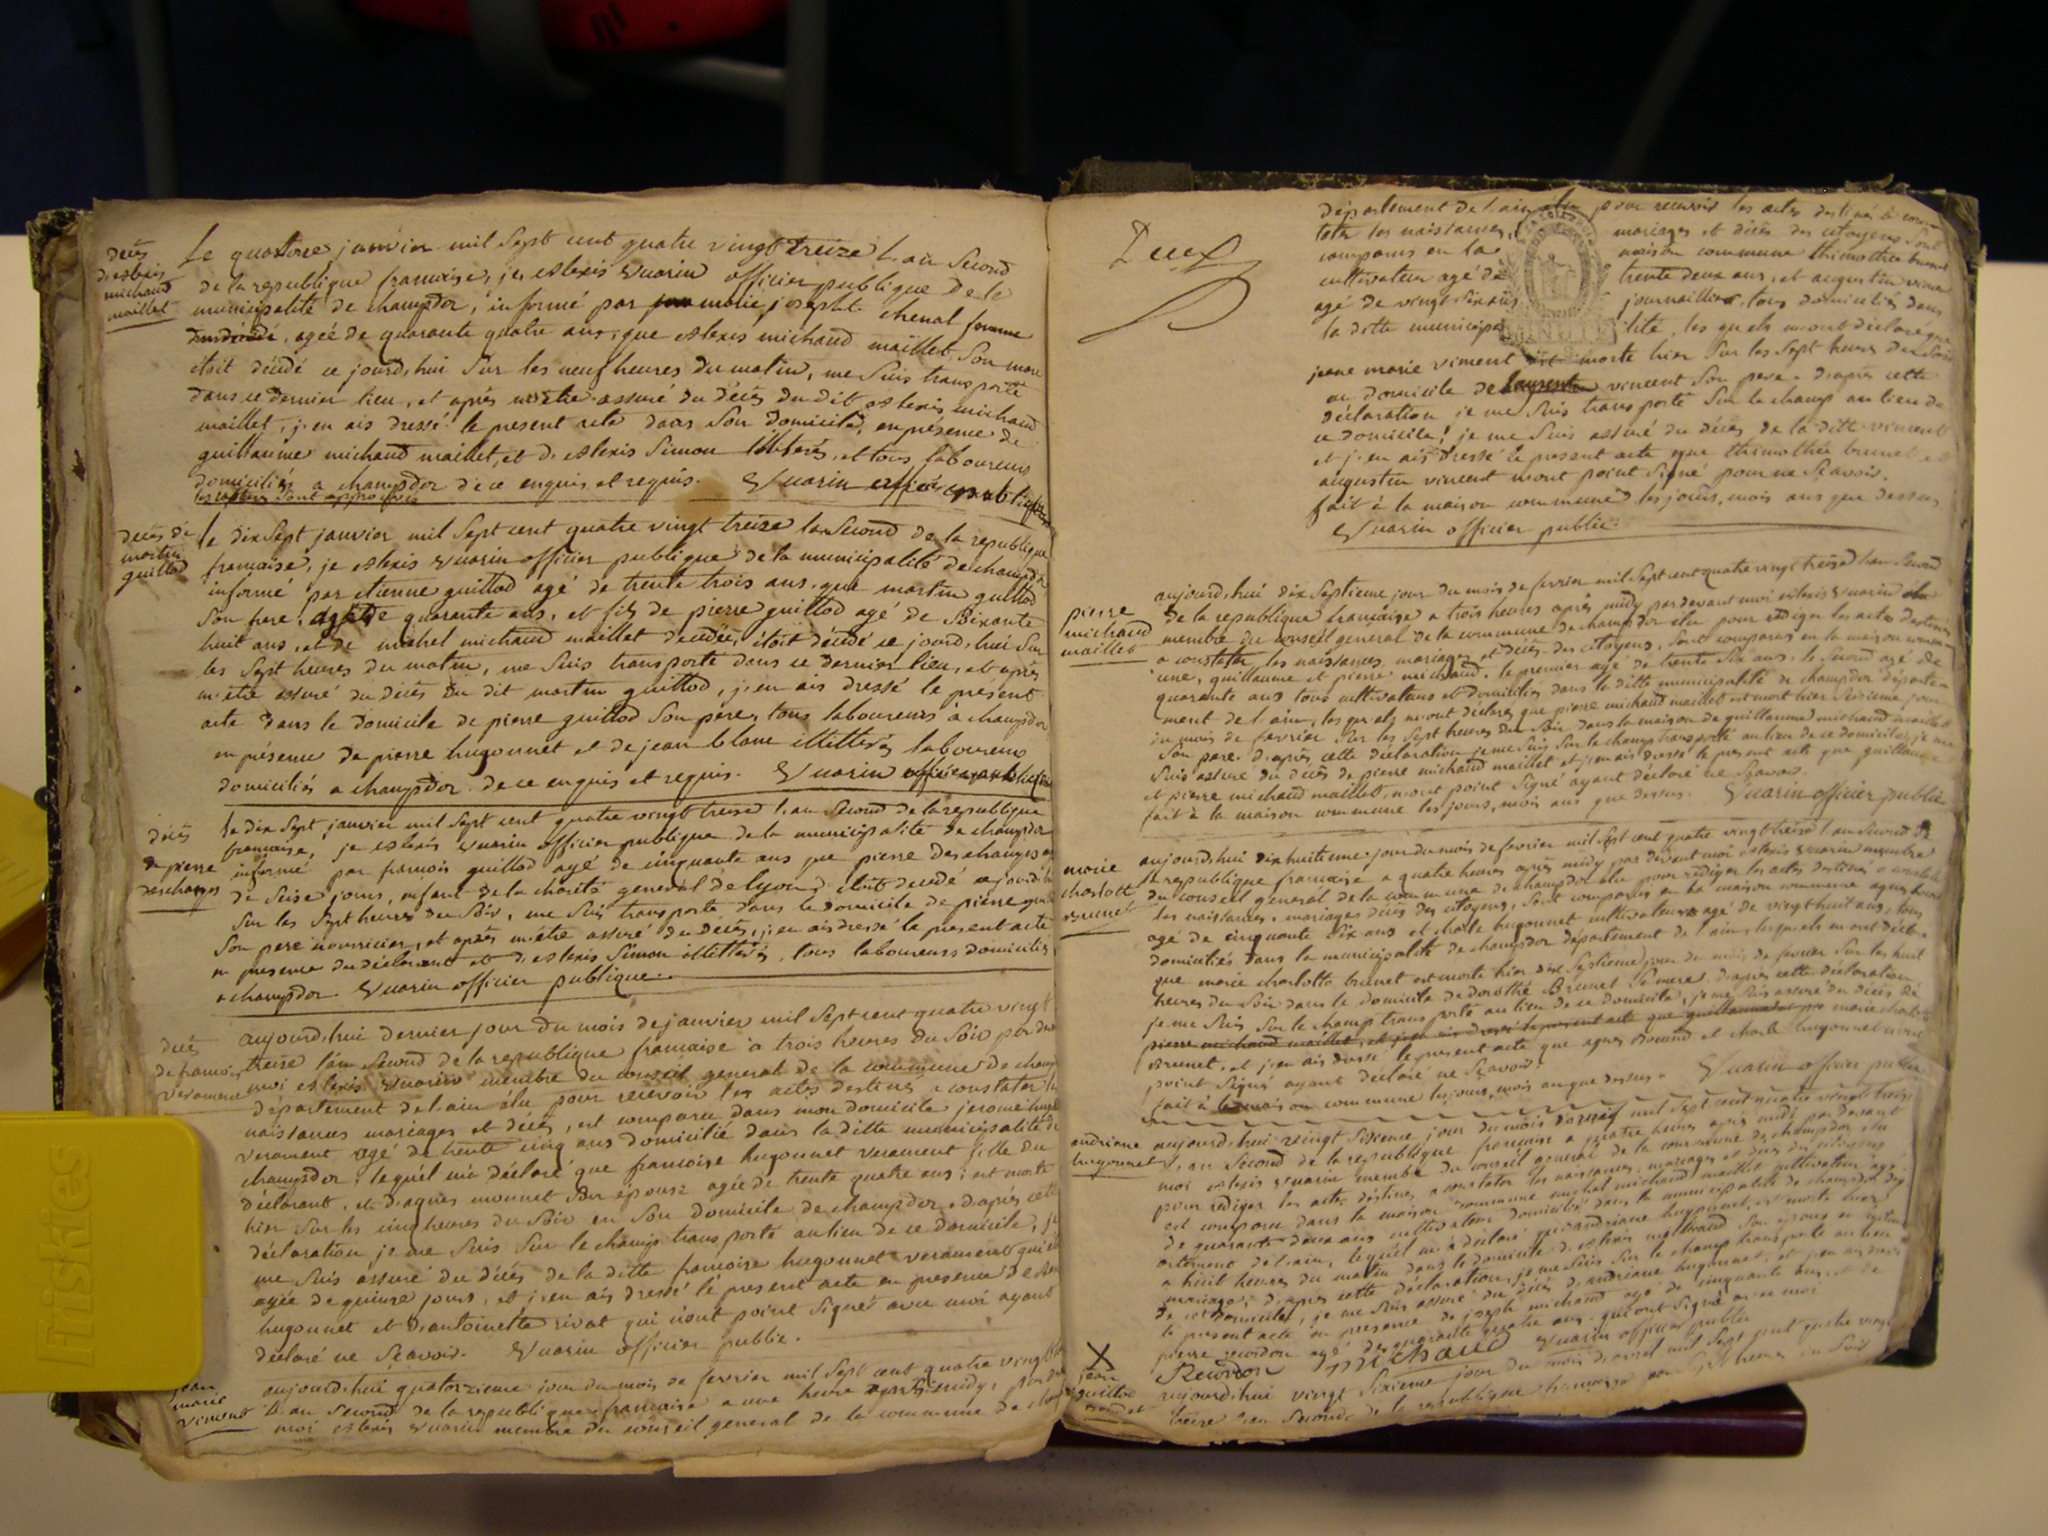 décès
d'alexis
michaud
maillet
Le quatorze janvier mil sept cent quatre vingt treize l'an second
de la republique francaise, je alexis Quarin officier publique de la
municipalité de champdor, informé par marie joseph chenal femme
agée de quarante quatre ans, que alexis michaud maillet son mari
étoit décédé ce jourd'hui sur les neuf heures du matin, me suis transporté
dans ce dernier lieu, et après m'etre assuré du décès du dit alexis michaud
maillet, j'en ais dressé le present acte dans son domicile, en présence de
guillaume michaud maillet, et d'alexis Simon illiterés, et tous laboureurs
domiciliés a champdor de ce enquis et requis. Quarin officier publique
décès de
martin
guillod
le dix sept janvier mil sept cent quatre vingt treize lan second de la republique
francaise, je alexis Quarin officier publique de la municipalité de champdor
informé par etienne guillod agé de trente trois ans, que martin guillod
son frere agé de quarante ans, et fils de pierre guillod agé de soixante
huit ans, et de michel michaud maillet décédée, étoit décédé ce jourd'hui sur
les sept heures du matin, me suis transporté dans ce dernier lieu, et après
m'etre assuré du décès du dit martin guillod, j'en ais dressé le présent
acte dans le domicile de pierre guillod son père, tous laboureurs à champdor
en présence de pierre hugonnet et de jean blanc illetterés laboureurs
domiciliés a champdor de ce enquis et requis. Quarin officier publique
décès
de pierre
deschamps
le dix sept janvier mil sept cent quatre vingt treise l'an second de la republique
francaise, je alexis Quarin officier publique de la municipalité de champdor
informé par francois guillod agé de cinquante ans que pierre deschamps
de seise jours, enfant de la charité general de lyon, étoit décédé ce jourd'hui
sur les sept heures du soir, me suis transporté dans le domicile de pierre
son pere nourricier, et après m'etre assuré du décès, j'en ais dressé le present acte
en presence du déclarant et d'alexis Simon illetterés, tous laboureurs domiciliés
a champdor. Quarin officier publique.
décès
de francoise
verament
aujourd'hui dernier jour du mois de janvier mil sept cent quatre vingt
treise l'an second de la republique francaise à trois heures du soir par devant
moi alexis Quarin membre du conseil general de la commune de champ
département de l'ain élu pour recevoir les actes destinés a constater les
naissances mariages et décès, est comparu dans mon domicile jerome
verament agé de trente cinq ans domicilié dans la ditte municipalité de
champdor, lequel m'a déclaré que francoise hugonnet verament fille du
déclarant, et d'agnès monnet son épouse agée de trente quatre ans, est morte
hier sur les cinq heures du soir en son domicile de champdor, d'après cette
déclaration je me suis sur le champ transporté au lieu de ce domicile, je
me suis assuré du décès de la ditte francoise hugonnet verament qui
agée de quinse jours, et j'en ais dressé le present acte en presence de
hugonnet et d'antoinette rivat qui n'ont point signés avec moi ayant
déclaré ne sçavoir. Quarin officier public.
jean
marie
viment
aujourd'hui quatorzieme jour du mois de fevrier mil sept cent quatre vingt
l'an second de la republique francaise a une heure après midy, par devant
moi alexis Quarin membre du conseil general de la commune de champ
Deux
département de l'ain élu pour recevoir les actes destinés à cons
tater les naissances, mariages et décès des citoyens, sont
comparus en la maison commune thimothée brunet
cultivateur agé de trente deux ans, et augustin vincent
agé de vingt six ans journaillier, tous domiciliés dans
la ditte municipalité, les quels m'ont déclaré que
jeane marie viment est morte hier sur les sept heures du soir
au domicile de laurent vincent son pere. D'après cette
déclaration je me suis transporté sur le champ au lieu de
ce domicile, je me suis assuré du décès de la ditte viment
et j'en ais dressé le present acte que thimothée brunet et
augustin vincent n'ont point signé pour ne sçavoir.
fait à la maison commune les jours, mois ans que dessus
Quarin officier public.
pierre
michaud
maillet
aujourd'hui dix septieme jour du mois de fevrier mil sept cent quatre vingt treise l'an second
de la republique francaise a trois heures après midy par devant moi alexis Quarin
membre du conseil general de la commune de champdor elu pour rediger les actes destinés
a constater les naissances, mariages et décès des citoyens, sont comparus en la maison comm
une, guillaume et pierre michaud, le premier agé de trente six ans, le second agé de
quarante ans tous cultivateurs et domiciliés dans la ditte municipalité de champdor departe
ment de l'ain, les quels m'ont déclarés que pierre michaud maillet est mort hier seizieme jour
du mois de fevrier sur les sept heures du soir dans la maison de guillaume michaud maillet
son pere. d'après cette déclaration je me suis sur le champ transporté au lieu de ce domicile, je me
suis assuré du décès de pierre michaud maillet et j'en ais dressé le present acte que guillaume
et pierre michaud maillet, n'ont point signé ayant déclaré ne sçavoir.
fait à la maison commune les jours, mois ans que dessus. Quarin officier public
marie
charlotte
brunet
aujourd'hui dix huitieme jour du mois de fevrier mil sept cent quatre vingt treise l'an second de
la republique francaise a quatre heures après midy par devant moi alexis Quarin membre
du conseil general de la commune de champdor élu pour rediger les actes destinés a constater
les naissances, mariages décès des citoyens, sont comparus en la maison commune
agé de cinquante six ans et charle hugonnet cultivateurs agé de vingt huit ans, tous
domiciliés dans la municipalité de champdor département de l'ain, lesquels m'ont décl
que marie charlotte brunet est morte hier dix septieme jour du mois de fevrier sur les huit
heures du soir dans le domicile de dorothé Brunet sa mere, d'après cette déclaration
je me suis sur le champ transporté au lieu de ce domicile, je me suis assuré du décès de
pierre michaud maillet, et j'en ais dressé le present acte que guillaume marie charlotte
Brunet, et j'en ais dressé le present acte que et charle hugonnet n'ont
point signé ayant déclaré ne sçavoir.
fait à la maison commune les jours, mois an que dessus. Quarin officier public
andriane
hugonnet
aujourd'hui vingt sixieme jour du mois d'avril mil sept cent quatre vingt treise
l'an second de la republique francaise a quatre heures après midi par devant
moi alexis Quarin membre du conseil general de la commune de champdor élu
pour rediger les actes destinés a constater les naissances, mariages et décès des citoyens
est comparu dans la maison commune michel michaud maillet cultivateur agé
de quarante deux ans cultivateur domicilié dans la municipalité de champdor dep
artement de l'ain, lequel m'a déclaré que andriane hugonnet, est morte hier
a huit heures du matin dans le domicile d'alexis michaud son époux
mariage, d'après cette déclaration, je me suis sur le champ transporté au lieu
de ce domicile, je me suis assuré du décès d'andriane hugonnet, et j'en ais dressé
le present acte en presence de joseph michaud agé de cinquante ans, et de
pierre reordon agé de quarante quatre ans, qui ont signé avec moi
Reordon michaud Quarin officier public
X
jean
guillod
aujourd'hui vingt sixieme jour du mois d'avril mil sept cent quatre vingt
treise l'an second de la republique francaise
Friskies